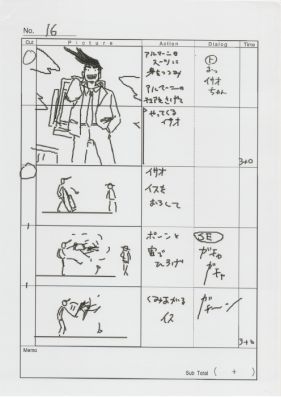 No. 16
Cut
Picture
Action
Dialog
Time
アルマーニの
スーツに
身をつつみ
アルマーニの
やってくる
イサオ
ト
よっ
イサオ
ちゃん
3+0
イサオ
イスを
おろして
ポーンと
宙で
ひろげ
SE
ガチャ
ガチャ
くみあがる
イス
ガチーン
3+0
Memo
Sub Total ( + )